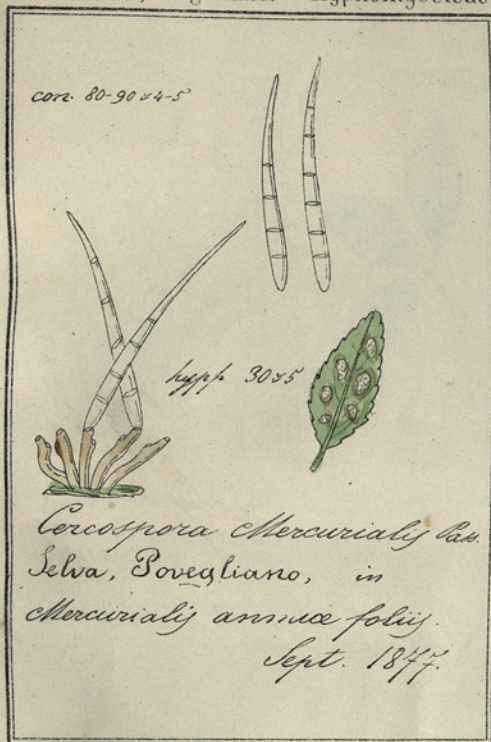 con. 80-90 x 4-5
hyph. 30 x 5
Cercospora Mercurialis Pass.
Selva, Povegliano, in
Mercurialis annuæ foliis.
Sept. 1877.